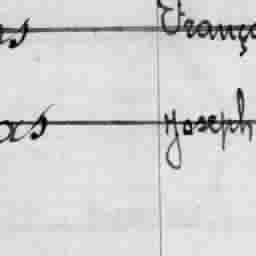 as França
as Joseph